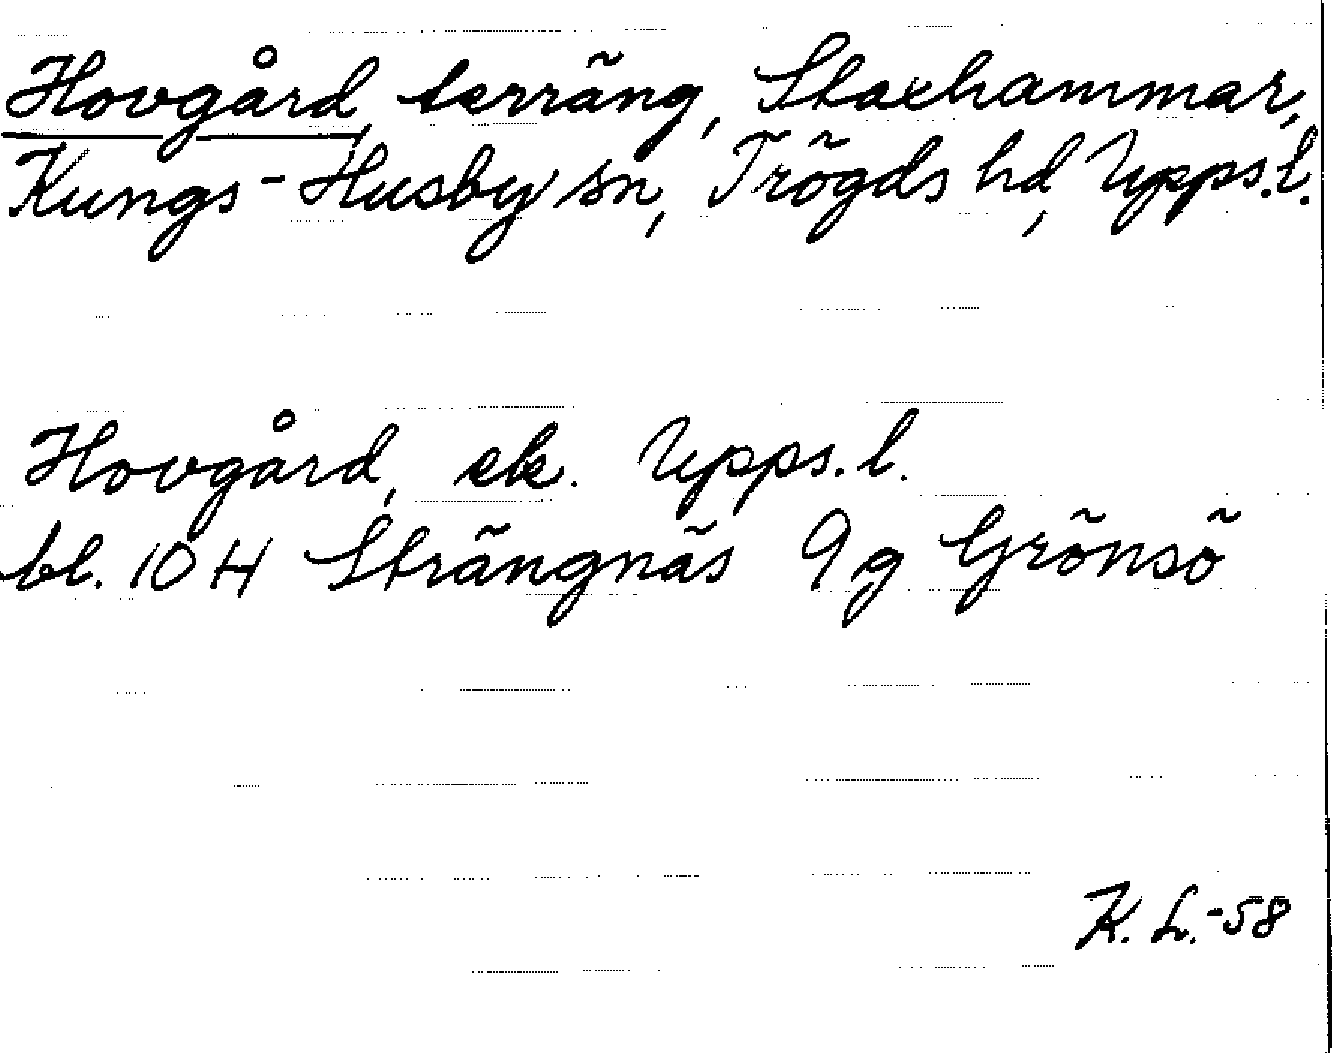 Hovgård, terräng, Staxhammar,
Kungs-Husby sn, Trögds hd, Upps.l.
Hovgård, ek. Upps.l.
bl. 10 H Strängnäs 9g Grönsö
K. L.-58